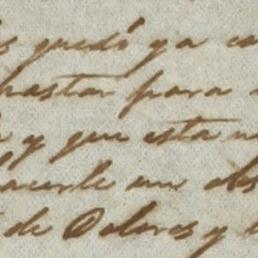 quedó ya
bastar para
y que esta
hacerle un obs
de Dolores y